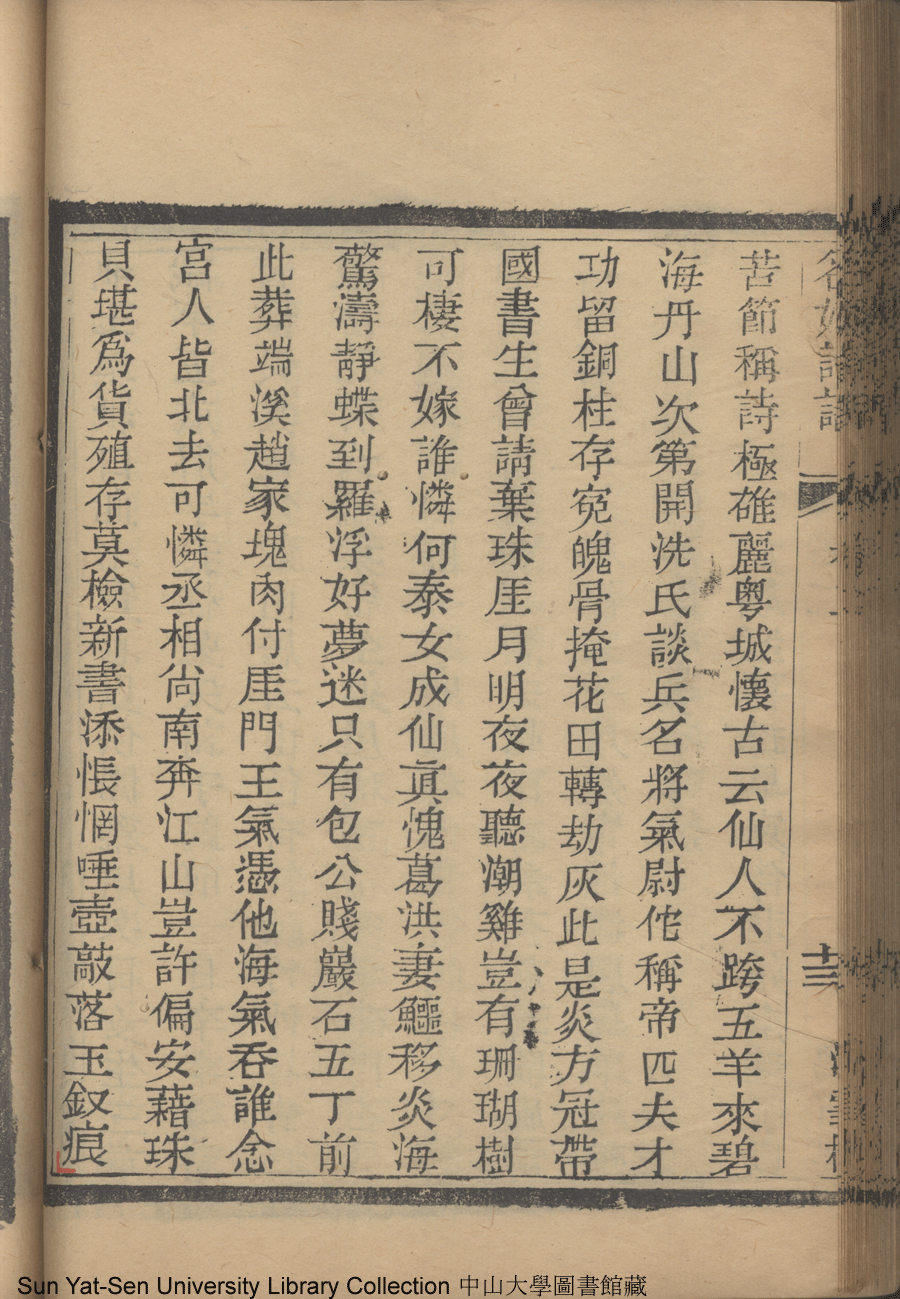 苦節稱詩極雄麗粵城懷古云仙人不跨五羊來碧
海丹山次第開洗氏談兵名將氣尉佗稱帝匹夫才
功留銅柱存寃魄骨掩花田轉劫灰此是炎方冠帶
國書生曾請棄珠厓月明夜夜聽潮雞豈有珊瑚樹
可棲不嫁誰憐何泰女成仙眞愧葛洪妻鱷移炎海
驚濤靜蝶到羅浮好夢迷只有包公賤巖石五丁前
此葬端溪趙家塊肉付厓門王氣憑他海氣吞誰念
宮人皆北去可憐丞相尙南奔江山豈許偏安藉珠
貝堪爲貨殖存莫檢新書添悵惘唾壺敲落玉釵痕
十三
Sun Yat-Sen University Library Collection 中山大學圖書館藏